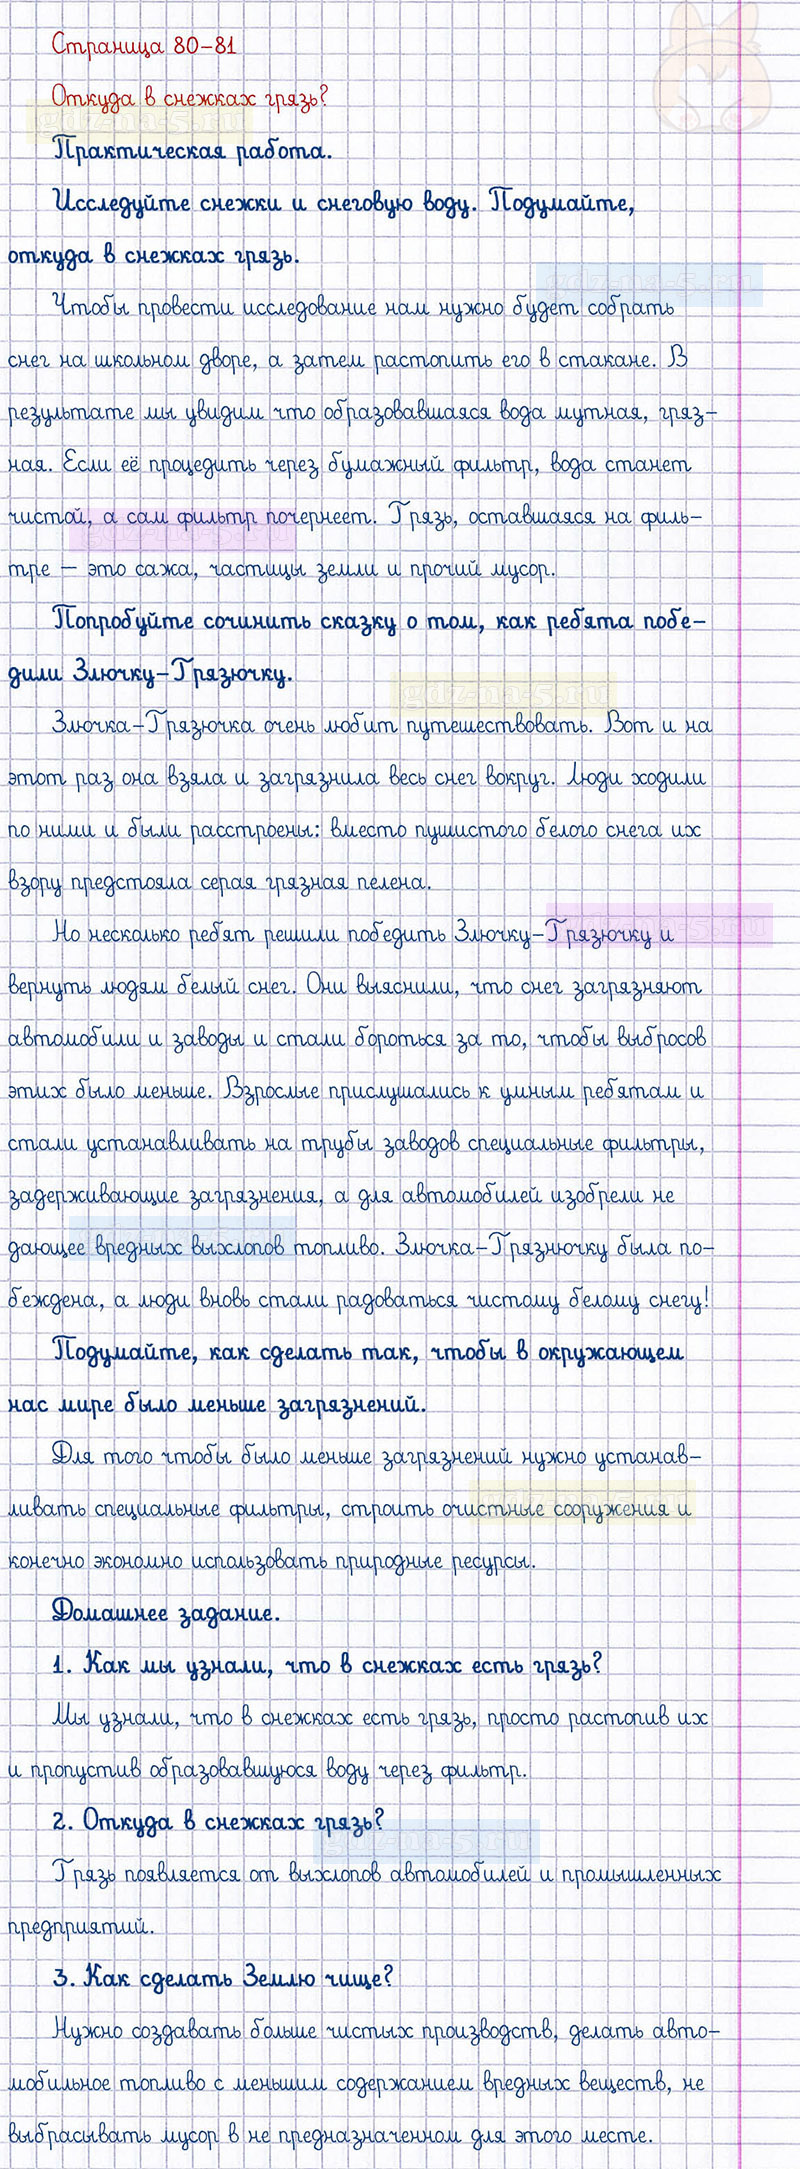 Страница 80-81
Откуда в снежках грязь?
gdz-na-5.ru
Практическая работа.
Исследуйте снежки и снеговую воду. Подумайте,
откуда в снежках грязь.
gdz-na-5.ru
Чтобы провести исследование нам нужно будет собрать
снег на школьном дворе, а затем растопить его в стакане. В
результате мы увидим что образовавшаяся вода мутная, гряз-
ная. Если её процедить через бумажный фильтр, вода станет
чистой, а сам фильтр почернеет. Грязь, оставшаяся на филь-
gdz-na-5.ru
тре – это сажа, частицы земли и прочий мусор.
Попробуйте сочинить сказку о том, как ребята побе-
дили Злючку-Грязючку.
gdz-na-5.ru
Злючка-Грязючка очень любит путешествовать. Вот и на
этот раз она взяла и загрязнила весь снег вокруг. Люди ходили
по ними и были расстроены: вместо пушистого белого снега их
взору предстояла серая грязная пелена.
Но несколько ребят решили победить Злючку-Грязючку и
gdz-na-5.ru
вернуть людям белый снег. Они выяснили, что снег загрязняют
автомобили и заводы и стали бороться за то, чтобы выбросов
этих было меньше. Взрослые прислушались к умным ребятам и
стали устанавливать на трубы заводов специальные фильтры,
задерживающие загрязнения, а для автомобилей изобрели не
дающее вредных выхлопов топливо. Злючка-Грязнючку была по-
gdz-na-5.ru
беждена, а люди вновь стали радоваться чистому белому снегу!
Подумайте, как сделать так, чтобы в окружающем
нас мире было меньше загрязнений.
Для того чтобы было меньше загрязнений нужно устанав-
ливать специальные фильтры, строить очистные сооружения и
gdz-na-5.ru
конечно экономно использовать природные ресурсы.
Домашнее задание.
1. Как мы узнали, что в снежках есть грязь?
Мы узнали, что в снежках есть грязь, просто растопив их
и пропустив образовавшуюся воду через фильтр.
2. Откуда в снежках грязь?
gdz-na-5.ru
Грязь появляется от выхлопов автомобилей и промышленных
предприятий.
3. Как сделать Землю чище?
Нужно создавать больше чистых производств, делать авто-
мобильное топливо с меньшим содержанием вредных веществ, не
выбрасывать мусор в не предназначенном для этого месте.